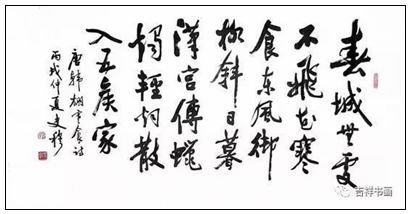 春城無處
不飛花寒
食東風御
柳斜日暮
漢宮傳蠟
燭輕烟散
入五侯家
唐韓翃寒食詩
丙戌仲夏
吉祥书画